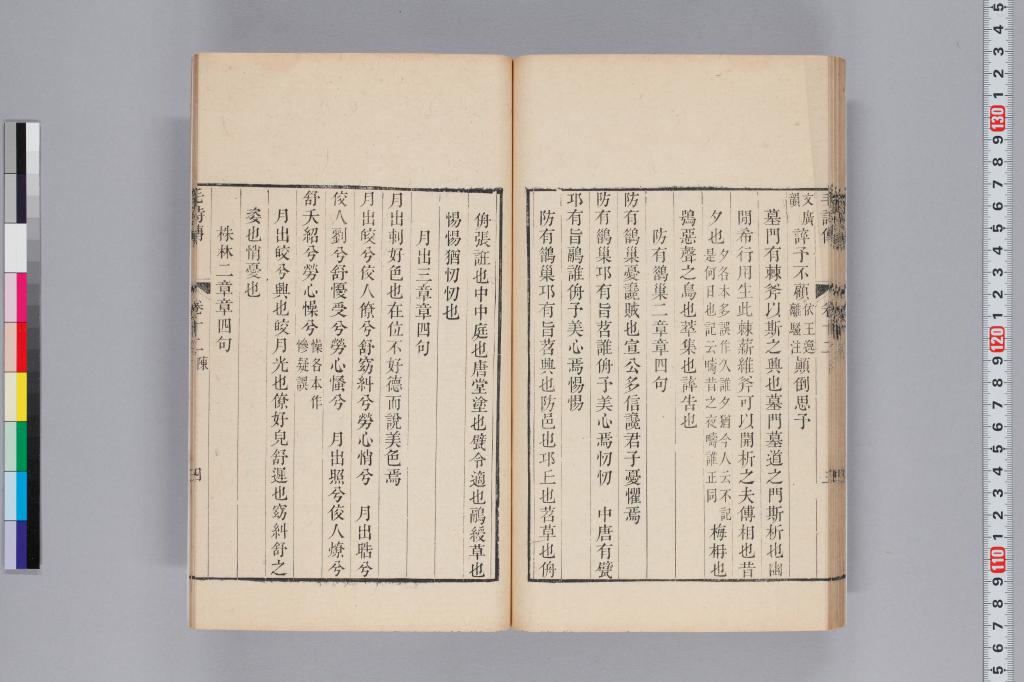 文廣
韻
誶予不顧
依王逸
離騷注
顚倒思予
墓門有棘斧以斯之興也墓門墓道之門斯析也幽
閒希行用生此棘薪維斧可以開析之夫傅相也昔
夕也
夕各本多誤作久誰夕猶今人云不記
是何日也記云疇昔之夜疇誰正同
梅枏也
鴞惡聲之鳥也萃集也誶吿也
防有鵲巢二章章四句
防有鵲巢憂讒賊也宣公多信讒君子憂懼焉
防有鵲巢邛有旨苕誰侜予美心焉忉忉 中唐有甓
邛有旨鷊誰侜予美心焉惕惕
防有鵲巢邛有旨苕興也防邑也邛丘也苕草也侜
侜張誑也中中庭也唐堂塗也甓令適也鷊綬草也
惕惕猶忉忉也
月出三章章四句
月出刺好色也在位不好德而說美色焉
月出皎兮佼人僚兮舒窈糾兮勞心悄兮 月出晧兮
佼人劉兮舒懮受兮勞心慅兮 月出照兮佼人燎兮
舒夭紹兮勞心懆兮
懆各本作
慘疑誤
月出皎兮興也皎月光也僚好皃舒遲也窈糾舒之
姿也悄憂也
株林二章章四句
毛詩傳 卷十二 陳 四